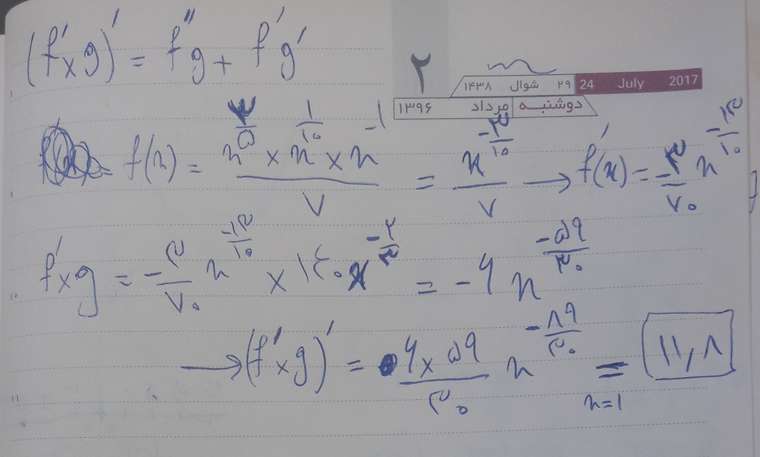 (f'×g)' = f''g + f'g'
۲
۲۹ شوال ۱۴۳۸
24 July 2017
دوشنبه مرداد ۱۳۹۶
f(x) = x^(۳/۵) × x^(۱/۱۰) × x^(-۱) / ۷ = x^(-۳/۱۰) / ۷ → f'(x) = -۳/۷۰ x^(-۱۳/۱۰)
f'×g = -۳/۷۰ x^(-۱۳/۱۰) × ۱۴۰ x^(-۲/۳) = -۶ x^(-۵۹/۳۰)
→ (f'×g)' = ۶×۵۹/۳۰ x^(-۸۹/۳۰) = x=1 ۱۱,۸